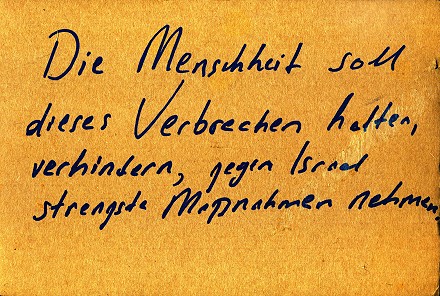 Die Menschheit soll
dieses Verbrechen halten,
verhindern, gegen Israel
strengste Maßnahmen nehmen.